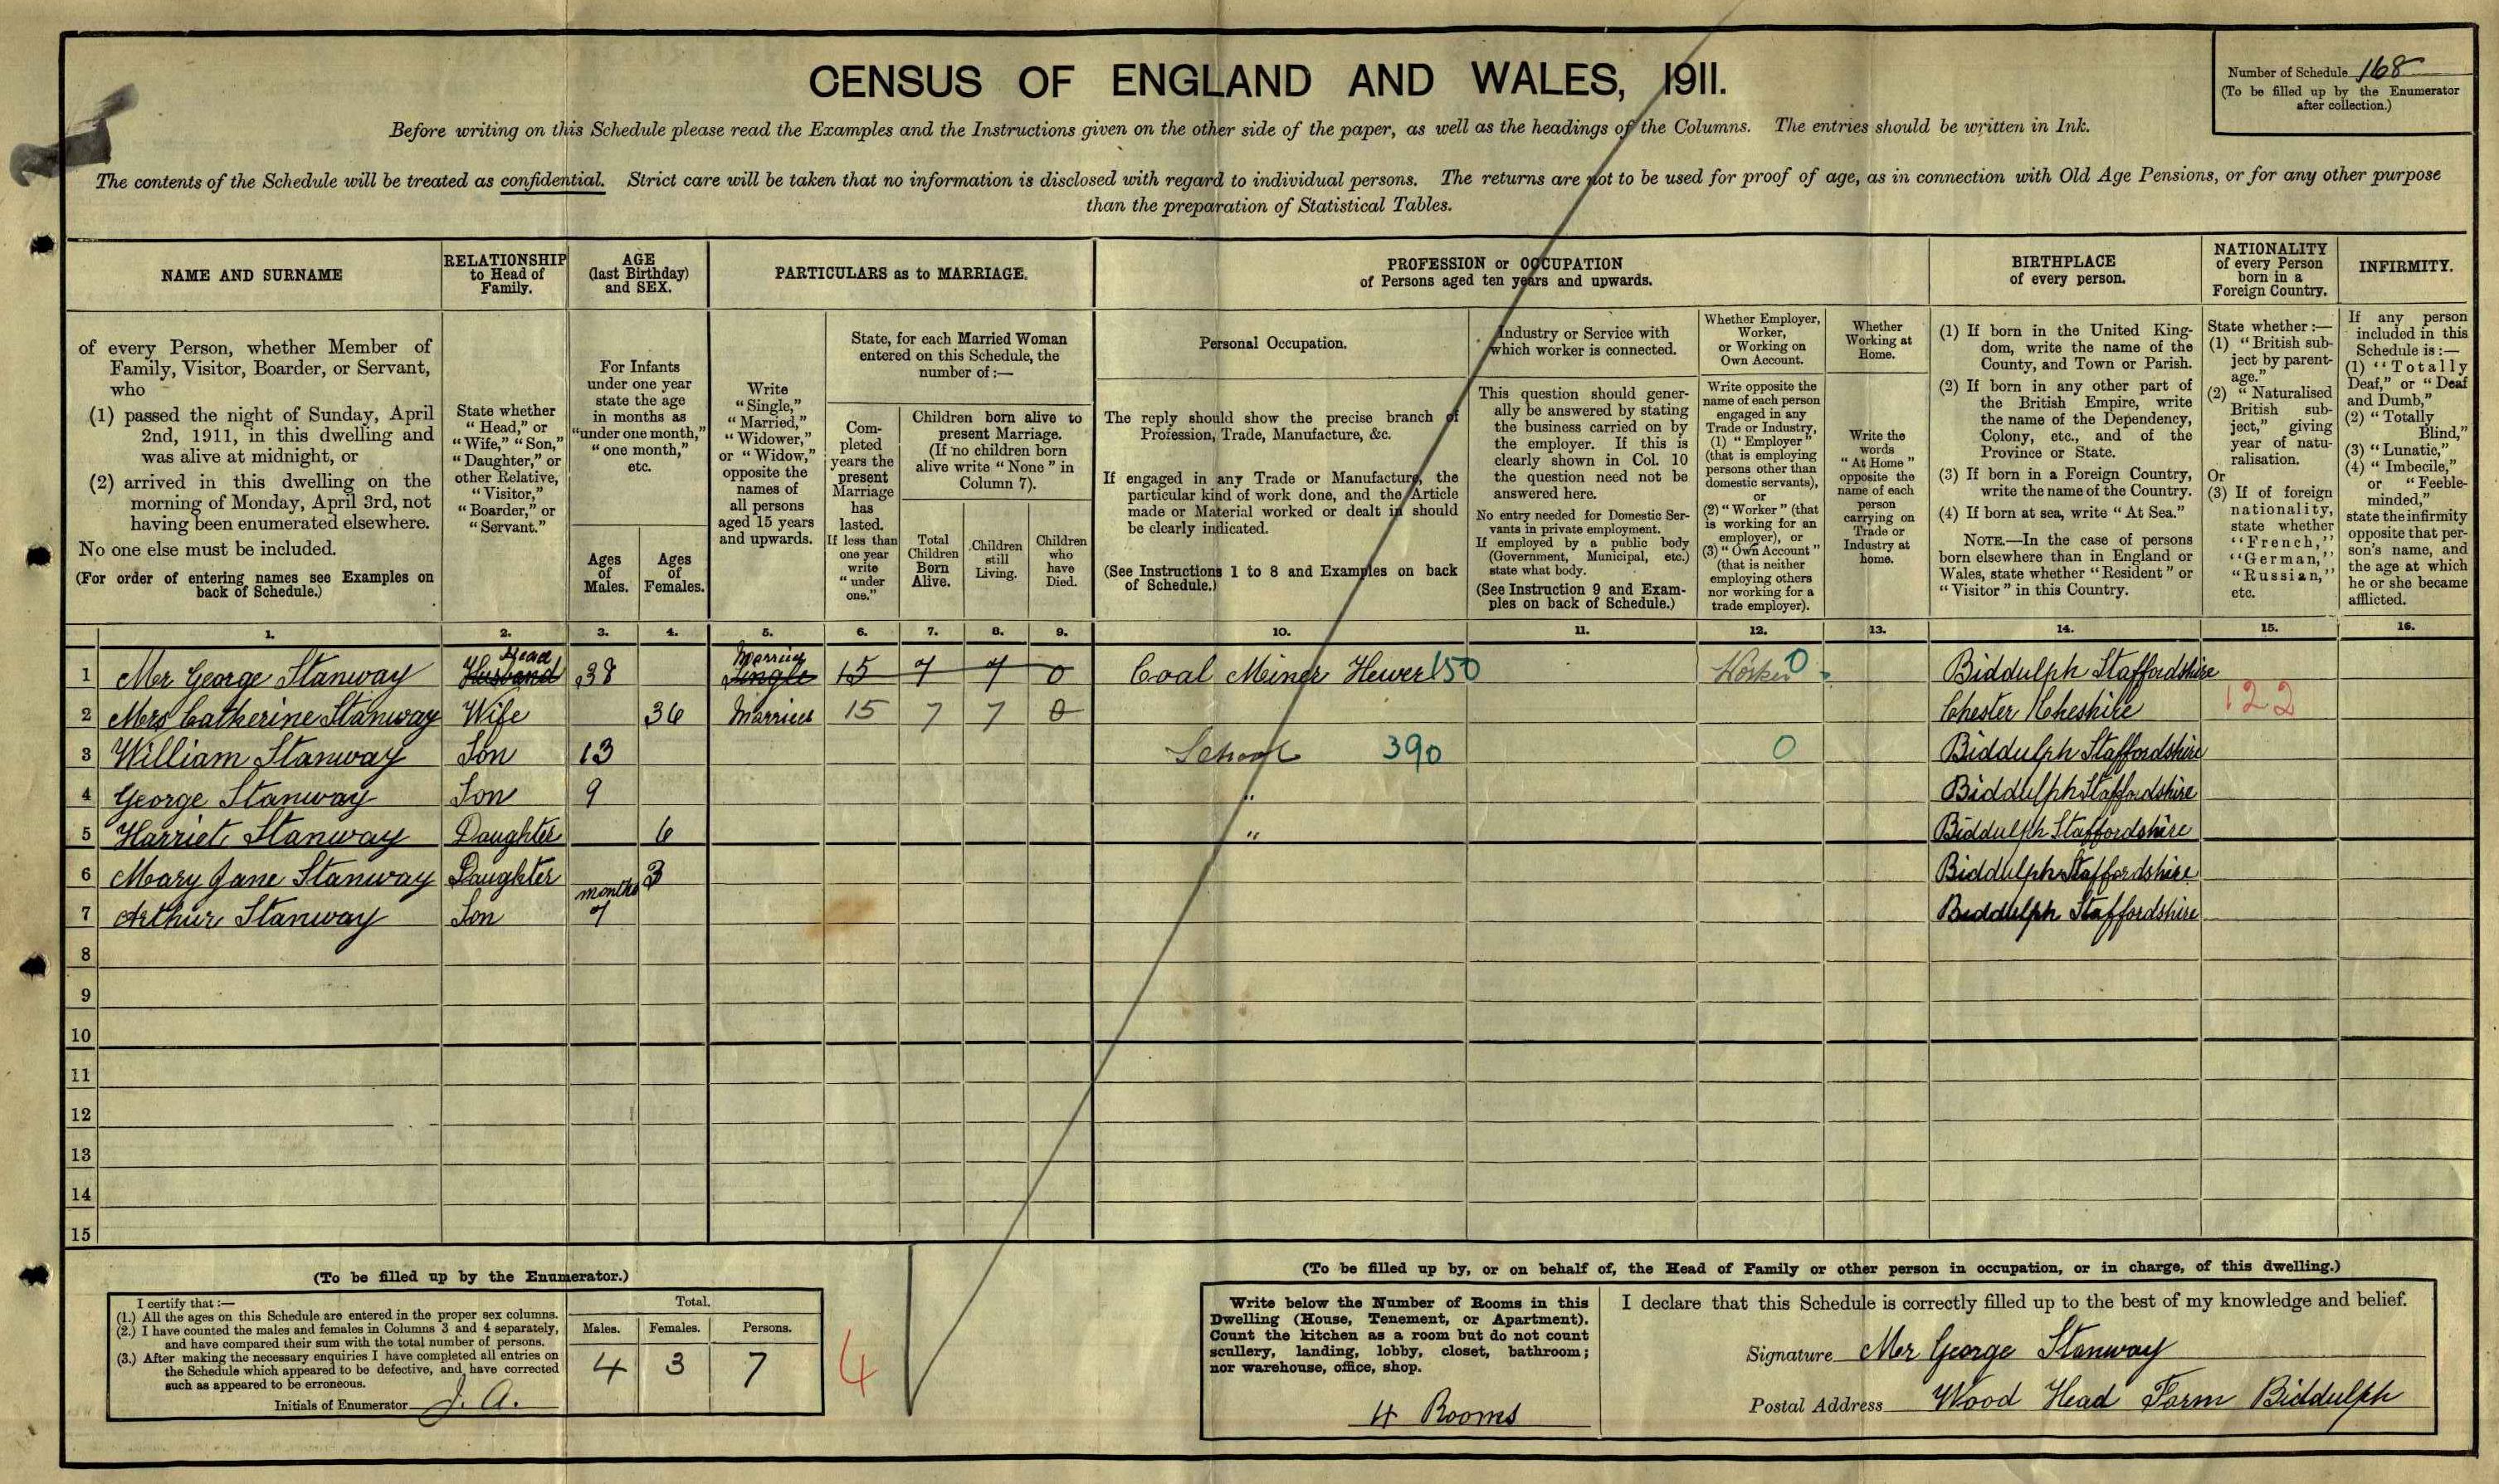 CENSUS OF ENGLAND AND WALES, 1911.
Number of Schedule 168
(To be filled up by the Enumerator
after collection.)
Before writing on this Schedule please read the Examples and the Instructions given on the other side of the paper, as well as the headings of the Columns. The entries should be written in Ink.
The contents of the Schedule will be treated as confidential. Strict care will be taken that no information is disclosed with regard to individual persons. The returns are not to be used for proof of age, as in connection with Old Age Pensions, or for any other purpose
than the preparation of Statistical Tables.
NAME AND SURNAME
of every Person, whether Member of
Family, Visitor, Boarder, or Servant,
who
(1) passed the night of Sunday, April
2nd, 1911, in this dwelling and
was alive at midnight, or
(2) arrived in this dwelling on the
morning of Monday, April 3rd, not
having been enumerated elsewhere.
No one else must be included.
(For order of entering names see Examples on
back of Schedule.)
RELATIONSHIP
to Head of
Family.
State whether
"Head," or
"Wife," "Son,"
"Daughter," or
other Relative,
"Visitor,"
"Boarder," or
"Servant."
AGE
(last Birthday)
and SEX.
For Infants
under one year
state the age
in months as
"under one month,"
"one month,"
etc.
Ages
of
Males.
Ages
of
Females.
PARTICULARS as to MARRIAGE.
Write
"Single,"
"Married,"
"Widower,"
or "Widow,"
opposite the
names of
all persons
aged 15 years
and upwards.
State, for each Married Woman
entered on this Schedule, the
number of :—
Com-
pleted
years the
present
Marriage
has
lasted.
If less than
one year
write
"under
one."
Children born alive to
present Marriage.
(If no children born
alive write "None" in
Column 7).
Total
Children
Born
Alive.
Children
still
Living.
Children
who
have
Died.
PROFESSION or OCCUPATION
of Persons aged ten years and upwards.
Personal Occupation.
The reply should show the precise branch of
Profession, Trade, Manufacture, &c.
If engaged in any Trade or Manufacture, the
particular kind of work done, and the Article
made or Material worked or dealt in should
be clearly indicated.
(See Instructions 1 to 8 and Examples on back
of Schedule.)
Industry or Service with
which worker is connected.
This question should gener-
ally be answered by stating
the business carried on by
the employer. If this is
clearly shown in Col. 10
the question need not be
answered here.
No entry needed for Domestic Ser-
vants in private employment.
If employed by a public body
(Government, Municipal, etc.)
state what body.
(See Instruction 9 and Exam-
ples on back of Schedule.)
Whether Employer,
Worker,
or Working on
Own Account.
Write opposite the
name of each person
engaged in any
Trade or Industry,
(1) "Employer"
(that is employing
persons other than
domestic servants),
or
(2) "Worker" (that
is working for an
employer), or
(3) "Own Account"
(that is neither
employing others
nor working for a
trade employer).
Whether
Working at
Home.
Write the
words
"At Home"
opposite the
name of each
person
carrying on
Trade or
Industry at
home.
BIRTHPLACE
of every person.
(1) If born in the United King-
dom, write the name of the
County, and Town or Parish.
(2) If born in any other part of
the British Empire, write
the name of the Dependency,
Colony, etc., and of the
Province or State.
(3) If born in a Foreign Country,
write the name of the Country.
(4) If born at sea, write "At Sea."
NOTE.—In the case of persons
born elsewhere than in England or
Wales, state whether "Resident" or
"Visitor" in this Country.
NATIONALITY
of every Person
born in a
Foreign Country.
State whether :—
(1) "British sub-
ject by parent-
age."
(2) "Naturalised
British sub-
ject," giving
year of natu-
ralisation.
Or
(3) If of foreign
nationality,
state whether
"French,"
"German,"
"Russian,"
etc.
INFIRMITY.
If any person
included in this
Schedule is :—
(1) "Totally
Deaf," or "Deaf
and Dumb,"
(2) "Totally
Blind,"
(3) "Lunatic,"
(4) "Imbecile,"
or "Feeble-
minded,"
state the infirmity
opposite that per-
son's name, and
the age at which
he or she became
afflicted.
1. 2. 3. 4. 5. 6. 7. 8. 9. 10. 11. 12. 13. 14. 15. 16.
Head Married
1 Mr George Stanway Husband 38 Single 15 7 7 0 Coal Miner Hewer 150 Worker 0 Biddulph Staffordshire
2 Mrs Catherine Stanway Wife 36 Married 15 7 7 0 Chester Cheshire 122
3 William Stanway Son 13 School 390 0 Biddulph Staffordshire
4 George Stanway Son 9 " Biddulph Staffordshire
5 Harriet Stanway Daughter 6 " Biddulph Staffordshire
6 Mary Jane Stanway Daughter 3 Biddulph Staffordshire
months
7 Arthur Stanway Son 7 Biddulph Staffordshire
8
9
10
11
12
13
14
15
(To be filled up by the Enumerator.)
I certify that :—
(1.) All the ages on this Schedule are entered in the proper sex columns.
(2.) I have counted the males and females in Columns 3 and 4 separately,
and have compared their sum with the total number of persons.
(3.) After making the necessary enquiries I have completed all entries on
the Schedule which appeared to be defective, and have corrected
such as appeared to be erroneous.
Initials of Enumerator J. A.
Total.
Males. Females. Persons.
4 3 7
4
(To be filled up by, or on behalf of, the Head of Family or other person in occupation, or in charge, of this dwelling.)
Write below the Number of Rooms in this
Dwelling (House, Tenement, or Apartment).
Count the kitchen as a room but do not count
scullery, landing, lobby, closet, bathroom;
nor warehouse, office, shop.
4 Rooms
I declare that this Schedule is correctly filled up to the best of my knowledge and belief.
Signature Mr George Stanway
Postal Address Wood Head Farm Biddulph